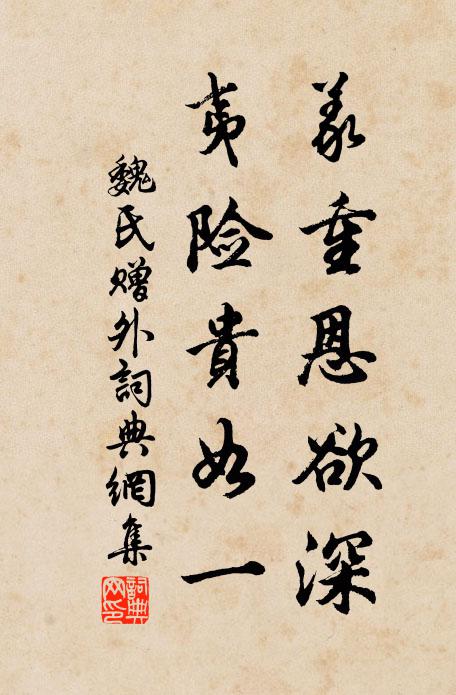 義重恩欲深
夷險貴如一
魏氏贈外詞典網集
詞典
网印